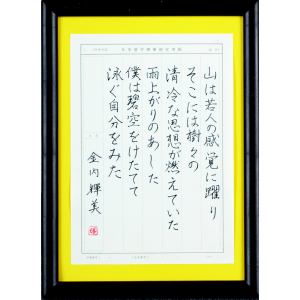 山は若人の感覚に躍り
そこには樹々の
清冷な思想が燃えていた
雨上がりのあした
僕は碧空をけたてて
泳ぐ自分をみた
金内輝美